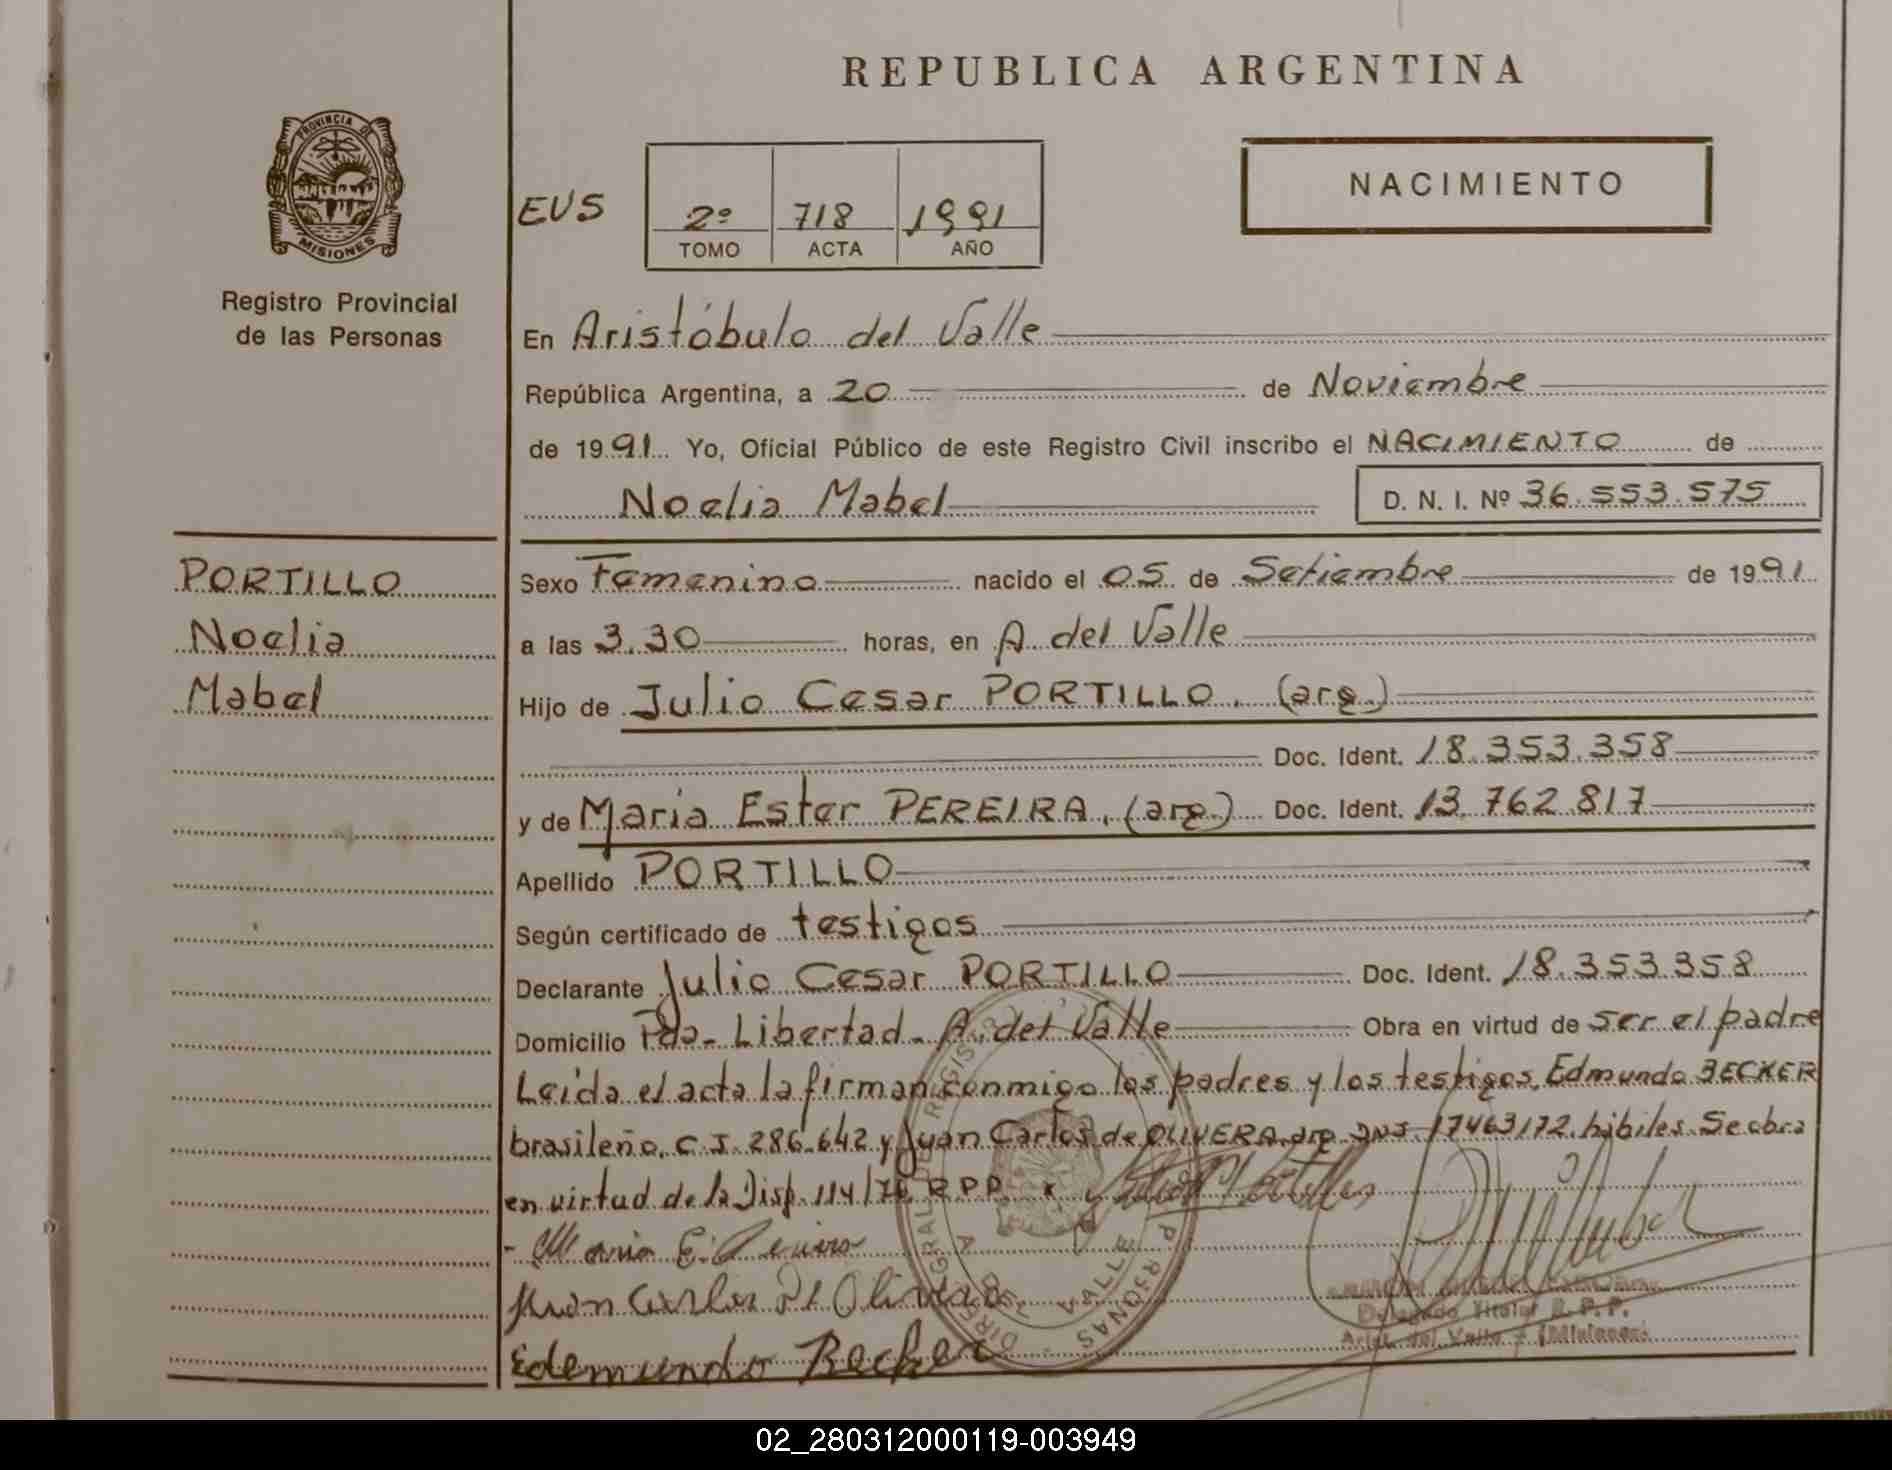 REPUBLICA ARGENTINA
PROVINCIA DE
MISIONES
Registro Provincial
de las Personas
EUS
2º 718 1991
TOMO ACTA AÑO
NACIMIENTO
En Aristóbulo del Valle
República Argentina, a 20 de Noviembre
de 1991 Yo, Oficial Público de este Registro Civil inscribo el NACIMIENTO de
Noelia Mabel
D. N. I. Nº 36.553.575
PORTILLO
Noelia
Mabel
Sexo Femenino nacido el 05 de Setiembre de 1991
a las 3.30 horas, en A. del Valle
Hijo de Julio Cesar PORTILLO. (arg.)
Doc. Ident. 18.353.358
y de Maria Ester PEREIRA, (arg.) Doc. Ident. 13.762.817
Apellido PORTILLO
Según certificado de testigos
Declarante Julio Cesar PORTILLO Doc. Ident. 18.353.358
Domicilio Pda- Libertad- A. del Valle Obra en virtud de ser el padre
Leída el acta la firman conmigo los padres y los testigos, Edmundo BECKER
brasileño, C.I. 286.642 y Juan Carlos de OLIVERA, arg. DNI. 17463172. hábiles. Se obra
en virtud de la Disp. 114/76 R P P.
Maria E. Pereira
Juan Carlos De Olivera
Edemundo Becker
Delegado Titular R. P. P.
Arist. del Valle - (Misiones)
02_280312000119-003949